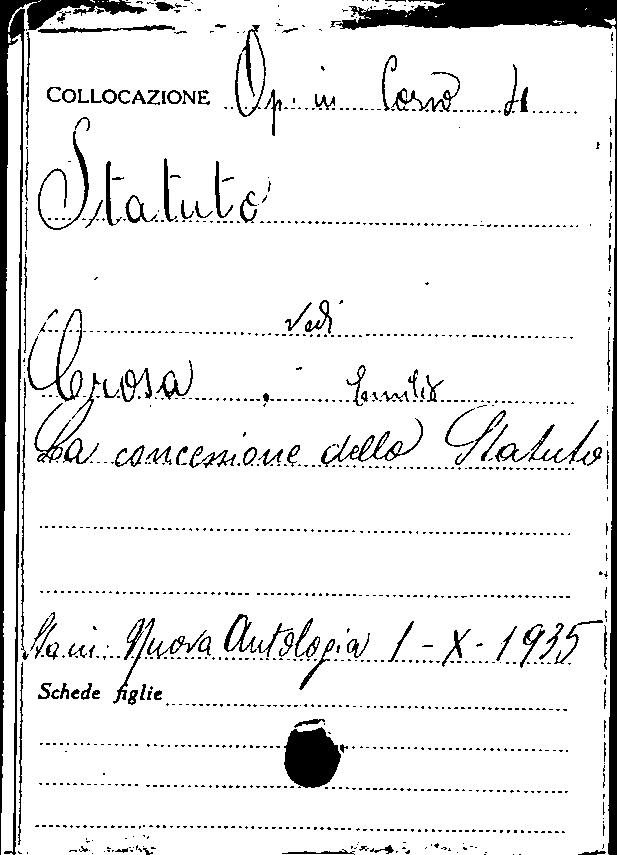 COLLOCAZIONE Op. in Corso 41
Statuto
Vedi
Crosa, Emilio
La concessione dello Statuto
Sta in: Nuova Antologia 1-X-1935
Schede figlie